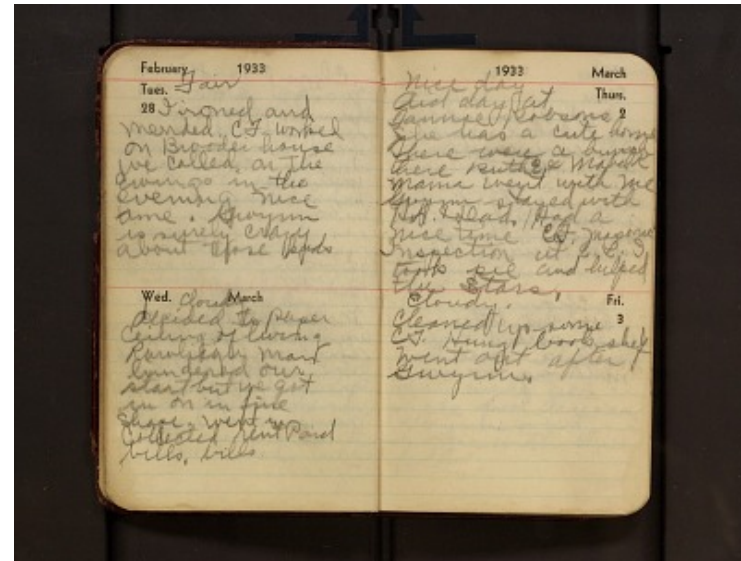 February 1933
Tues. Fair
28 I ironed and
mended. C.F. worked
on Brooder house
we called on the
Ewings in the
evening nice
time. Gwynn
is surely crazy
about those kids
Wed. Cloudy March
Decided to paper
Ceiling of living
Rawleigh man
hindered our
start but we got
it on in fine
shape. Went in
Collected rent Paid
bills, bills
1933 March
Nice day
day at Thurs.
Fannie Robsons 2
She has a cute home
There were a bunch
there Ruth & Mabel
Mama went with me
Gwynn stayed with
Had a
nice time C.F.
Inspection at
took pie and helped
the Stars.
Cloudy. Fri.
Cleaned up some 3
C.F. Hung book shelf
Went out after
Gwynn.